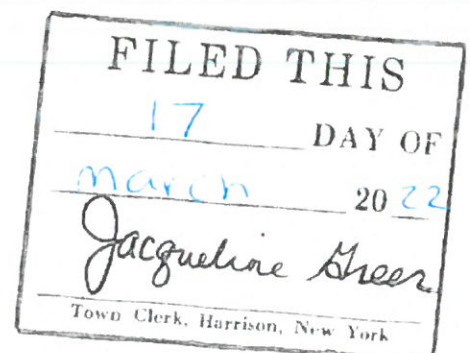 FILED THIS
17 DAY OF
March 20 22
Jacqueline Greer
Town Clerk, Harrison, New York